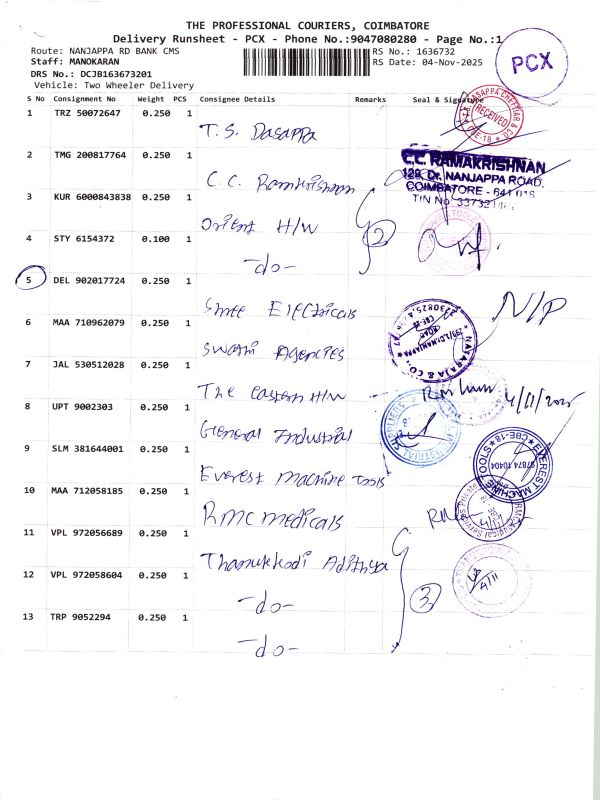 THE PROFESSIONAL COURIERS, COIMBATORE
Delivery Runsheet - PCX - Phone No.:9047080280 - Page No.:1
Route: NANJAPPA RD BANK CMS
RS No.: 1636732
Staff: MANOKARAN
RS Date: 04-Nov-2025
DRS No.: DCJB163673201
Vehicle: Two Wheeler Delivery
PCX
S No Consignment No Weight PCS Consignee Details Remarks Seal & Signature
1 TRZ 50072647 0.250 1 T. S. Dasappa
RECEIVED
2 TMG 200817764 0.250 1 C. C. Ramkrishnan
C.C. RAMAKRISHNAN
129, Dr. NANJAPPA ROAD,
COIMBATORE - 641 018
TIN No
3 KUR 6000843838 0.250 1 Orient H/W
4 STY 6154372 0.100 1 -do-
2
5 DEL 902017724 0.250 1 Shree Electricals N/P
6 MAA 710962079 0.250 1 Swathi Agencies
NAYARAJA & CO.
7 JAL 530512028 0.250 1 The Eastern H/W 4/11/2025
8 UPT 9002303 0.250 1 General Industrial
9 SLM 381644001 0.250 1 Everest Machine Tools
EVEREST MACHINE TOOLS CBE-18
97874 10404
10 MAA 712058185 0.250 1 RMC Medicals
11 VPL 972056689 0.250 1 Thanukkodi Adithya
12 VPL 972058604 0.250 1 -do-
3
4/11
13 TRP 9052294 0.250 1 -do-